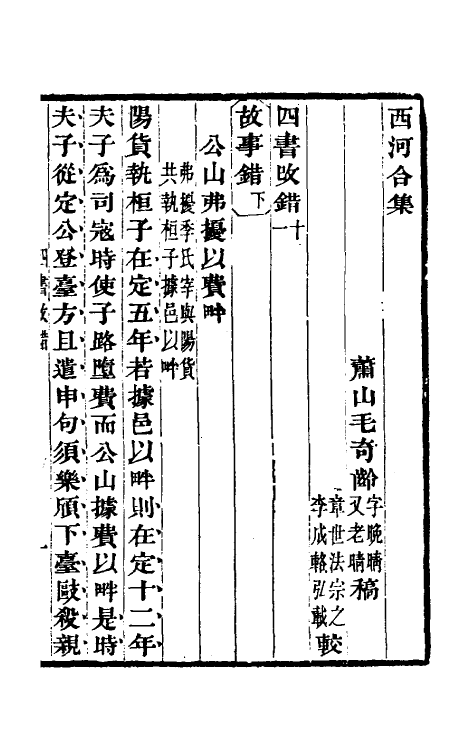 西河合集
蕭山毛奇齡字晚晴又老晴稿
章世法宗之李成輅弘載較
四書改錯十一
故事錯下
公山弗擾以費畔
弗擾季氏宰與陽貨
共執桓子據邑以畔
陽貨執桓子在定五年若據邑以畔則在定十二年
夫子爲司寇時使子路墮費而公山據費以畔是時
夫子從定公登臺方且遣申句須樂頎下臺敺殺親
四書改錯
一